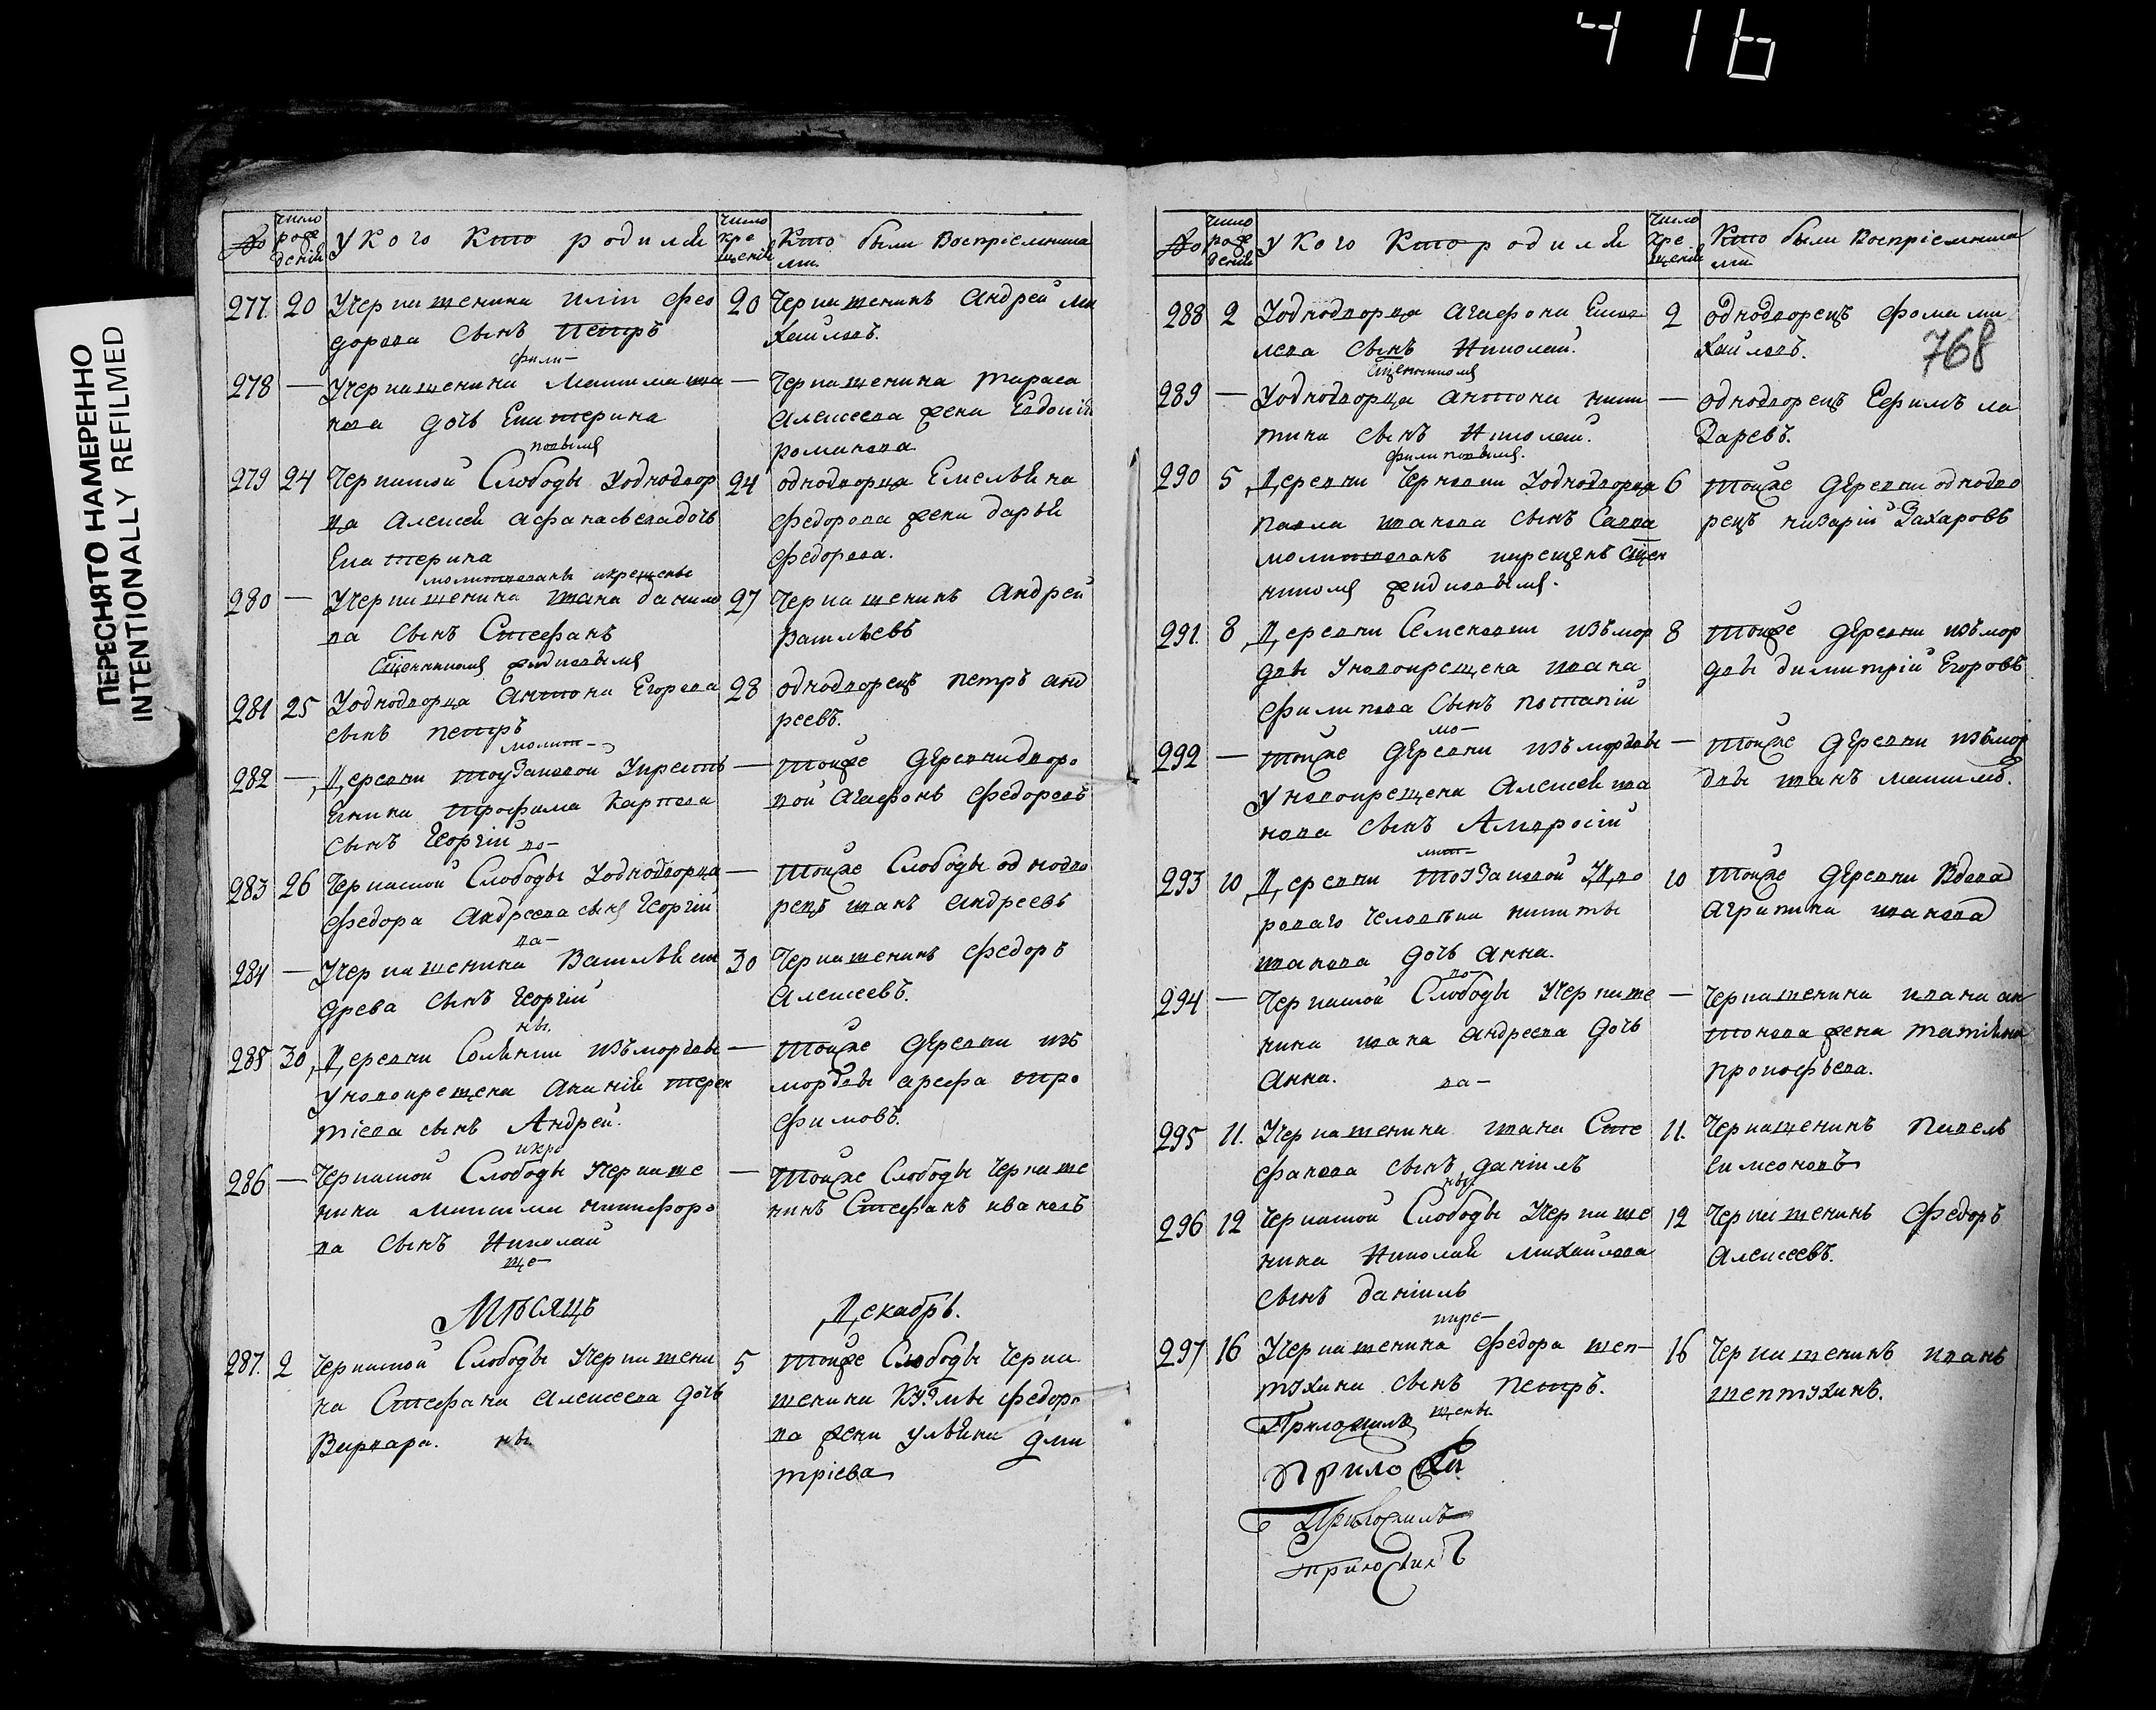 416
ПЕРЕСНЯТО НАМЕРЕННО
INTENTIONALLY REFILMED
№
число рождения
У кого кто родился
число крещения
Кто были восприемника
ми.
277. 20 У Черкашенина Иліи Фео
дорова сынъ Петръ
фили-
20 Черкашенинъ Андрей Ми
хайловъ.
278 — У Черкашенина Максима Ива
нова дочь Екатерина
повымъ
— Черкашенина Тараса
Алексеева жена Евдокія
Романова
279 24 Черкаской Слободы У однодвор
ца Алексея Афанасьева дочь
Екатерина
молитвованы и крещены
24 однодворца Емельяна
Федорова жена Дарья
Федорова.
280 — У Черкашенина Ивана Данило
ва сынъ Стефанъ
Сщенникомъ
27 Черкашенинъ Андрей
Васильевъ
281 25 У однодворца Антона Егорова
сынъ Петръ
молит-
28 однодворецъ Петръ Анд
реевъ.
282 — Деревни У крестья
енина Трофима Карпова
сынъ Георгій
во-
— Тойже деревни дворо
вой Агафонъ Федоровъ
283 26 Черкаской Слободы У однодворца
Федора Андреева сынъ Георгій
ва-
— Тойже Слободы однодво
рецъ Иванъ Андреевъ
284 — У Черкашенина Василья Ан
дреева сынъ Георгій
ны.
30 Черкашенинъ Федоръ
Алексеевъ.
285 30 Деревни изъ мордвы
У новокрещена Ананія Терен
тіева сынъ Андрей.
икре
— Тойже деревни изъ
мордвы Арефа Тро
фимовъ.
286 — Черкаской Слободы У Черкаше
нина Максима Никифоро
ва сынъ Николай
ще-
— Тойже Слободы Черкаше
нинъ Стефанъ Ивановъ
Мѣсяцъ Декабрь.
287. 2 Черкаской Слободы У Черкашени
на Стефана Алексеева дочь
Варвара. ны
5 Тойже Слободы Черка
шенина Кузмы Федоро
ва жена Ульяна Дми
тріева
№
число рождения
У кого кто родился
число крещения
Кто были восприемника
ми
768
288 2 У однодворца Агафона
лева сынъ Николай.
Сщенникомъ
2 однодворецъ Фома Ми
хайловъ.
289 — У однодворца Антона Ники
тина сынъ Николай.
филиповымъ.
— однодворецъ Ефимъ Ла
заревъ.
290 5 Деревни У однодворца
Павла Иванова сынъ Савва
молитвованъ и крещенъ Сщен
никомъ
6 Тойже деревни однодво
рецъ Назарій Захаровъ
291. 8 Деревни Семеновки изъ мор
двы У новокрещена Ивана
Филипова сынъ Потапій
мо-
8 Тойже деревни изъ мор
двы Димитрій Егоровъ
292 — Тойже деревни изъ мордвы
У новокрещена Алексея Ива
нова сынъ Амвросій
лит-
— Тойже деревни изъ мор
двы Иванъ Максимовъ.
293 10 Деревни У Дво
роваго человѣка Никиты
Иванова дочь Анна.
во-
10 Тойже деревни Вдова
Агрипина Иванова
294 — Черкаской Слободы У Черкаше
нина Ивана Андреева дочь
Анна. ва-
— Черкашенина Ивана Ан
тонова жена Татіяна
Прокофьева.
295 11. У Черкашенина Ивана Сте
фанова сынъ Даніилъ
ны
11. Черкашенинъ Павелъ
Симеоновъ
296 12 Черкаской Слободы У Черкаше
нина Николая Михайлова
сынъ Даніилъ
икре-
12 Черкашенинъ Федоръ
Алексеевъ.
297 16 У Черкашенина Федора Шеп-
тухина сынъ Петръ.
щены.
16 Черкашенинъ Иванъ
Шептухинъ.